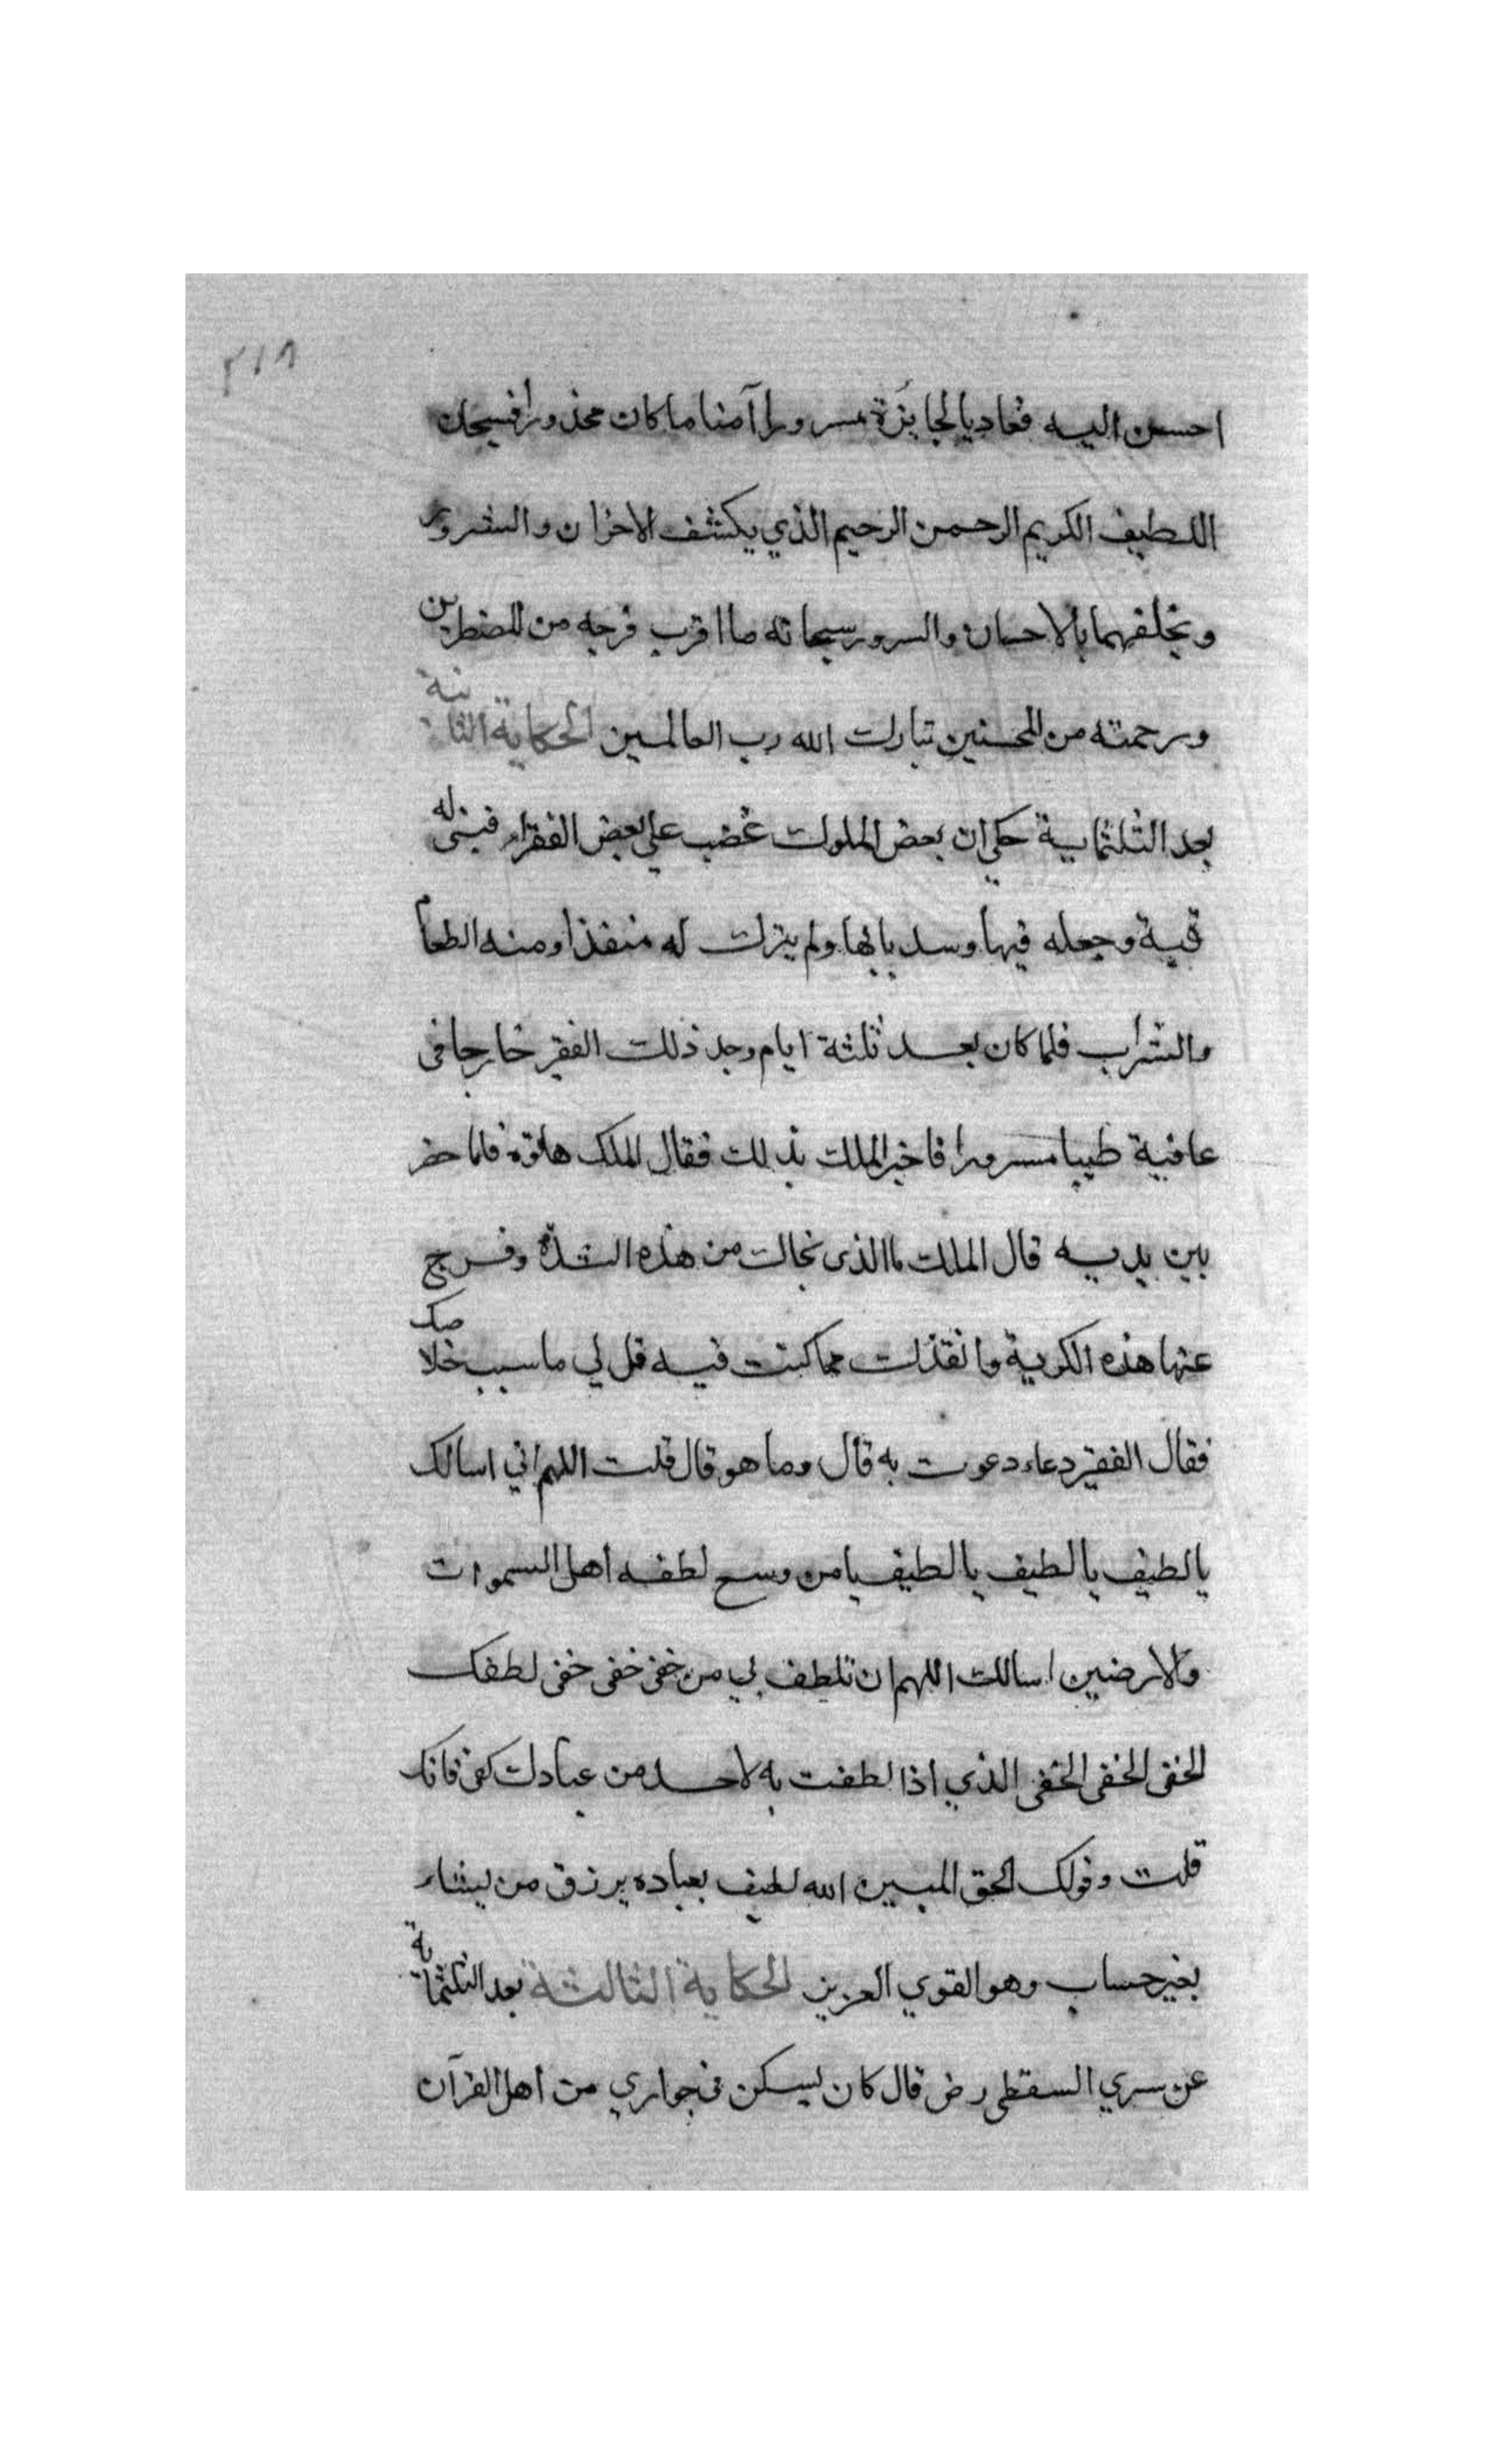 ٢١٨
احسن اليه فعاد بالجايزة مسرورا آمنا ما كان محذورا فسبحان
اللطيف الكريم الرحمن الرحيم الذي يكشف الاحزان والشرور
ويخلفهما بالاحسان والسرور سبحانه ما اقرب فرجه من المضطرين
ورحمته من المحسنين تبارك الله رب العالمين الحكاية الثانية
بعد الثلثماية حكى ان بعض الملوك غضب على بعض الفقراء فبنى له
قبة وجعله فيها وسد بابها ولم يترك له منفذا ومنه الطعام
والشراب فلما كان بعد ثلثة ايام وجد ذلك الفقير خارجا في
عافية طيبا مسرورا فاخبر الملك بذلك فقال الملك هاتوه فلما حضر
بين يديه قال الملك ما الذى نجاك من هذه الشدة وفرج
عنها هذه الكربة وانقذك مما كنت فيه قل لي ما سبب خلاصك
فقال الفقير دعاء دعوت به قال وما هو قال قلت اللهم اني اسالك
يا لطيف يا لطيف يا لطيف يا من وسع لطفه اهل السموات
والارضين اسالك اللهم ان تلطف بي من خفى خفى خفى لطفك
الخفى الخفى الخفى الذي اذا لطفت به لاحد من عبادك كفى فانك
قلت وقولك الحق المبين الله لطيف بعباده يرزق من يشاء
بغير حساب وهو القوي العزيز الحكاية الثالثة بعد الثلثماية
عن سري السقطى رض قال كان يسكن في جواري من اهل القرآن